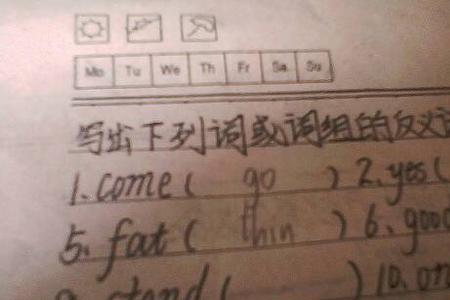 Mo Tu We Th Fr Sa Su
写出下列词或词组的反义词
1. come ( go ) 2. yes (
5. fat ( thin ) 6. good
9. stand ( ) 10. on